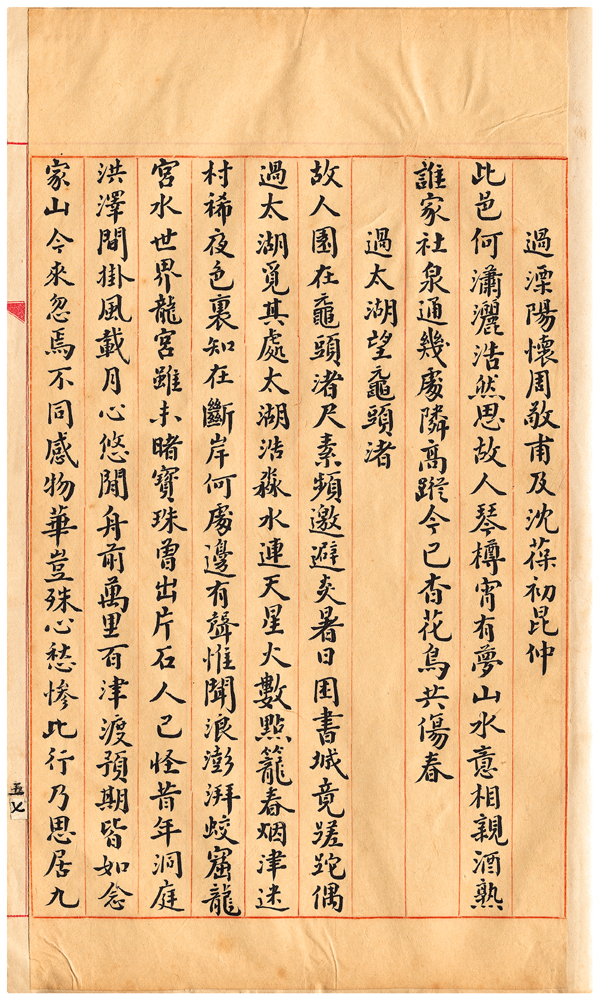 過溧陽懷周敬甫及沈葆初昆仲
此邑何瀟灑浩然思故人琴樽宵有夢山水意相親酒熟
誰家社泉通幾處隣高蹤今已杳花鳥共傷春
過太湖望黿頭渚
故人園在黿頭渚尺素頻邀避炎暑日困書城竟蹉跎偶
過太湖覓其處太湖浩淼水連天星火數點籠春烟津迷
村稀夜色裏知在斷岸何處邊有聲惟聞浪澎湃蛟窟龍
宮水世界龍宮雖未睹寶珠曾出片石人已怪昔年洞庭
洪澤間掛風載月心悠閒舟前萬里百津渡預期皆如念
家山今來忽焉不同感物華豈殊心愁慘此行乃思居九
五七